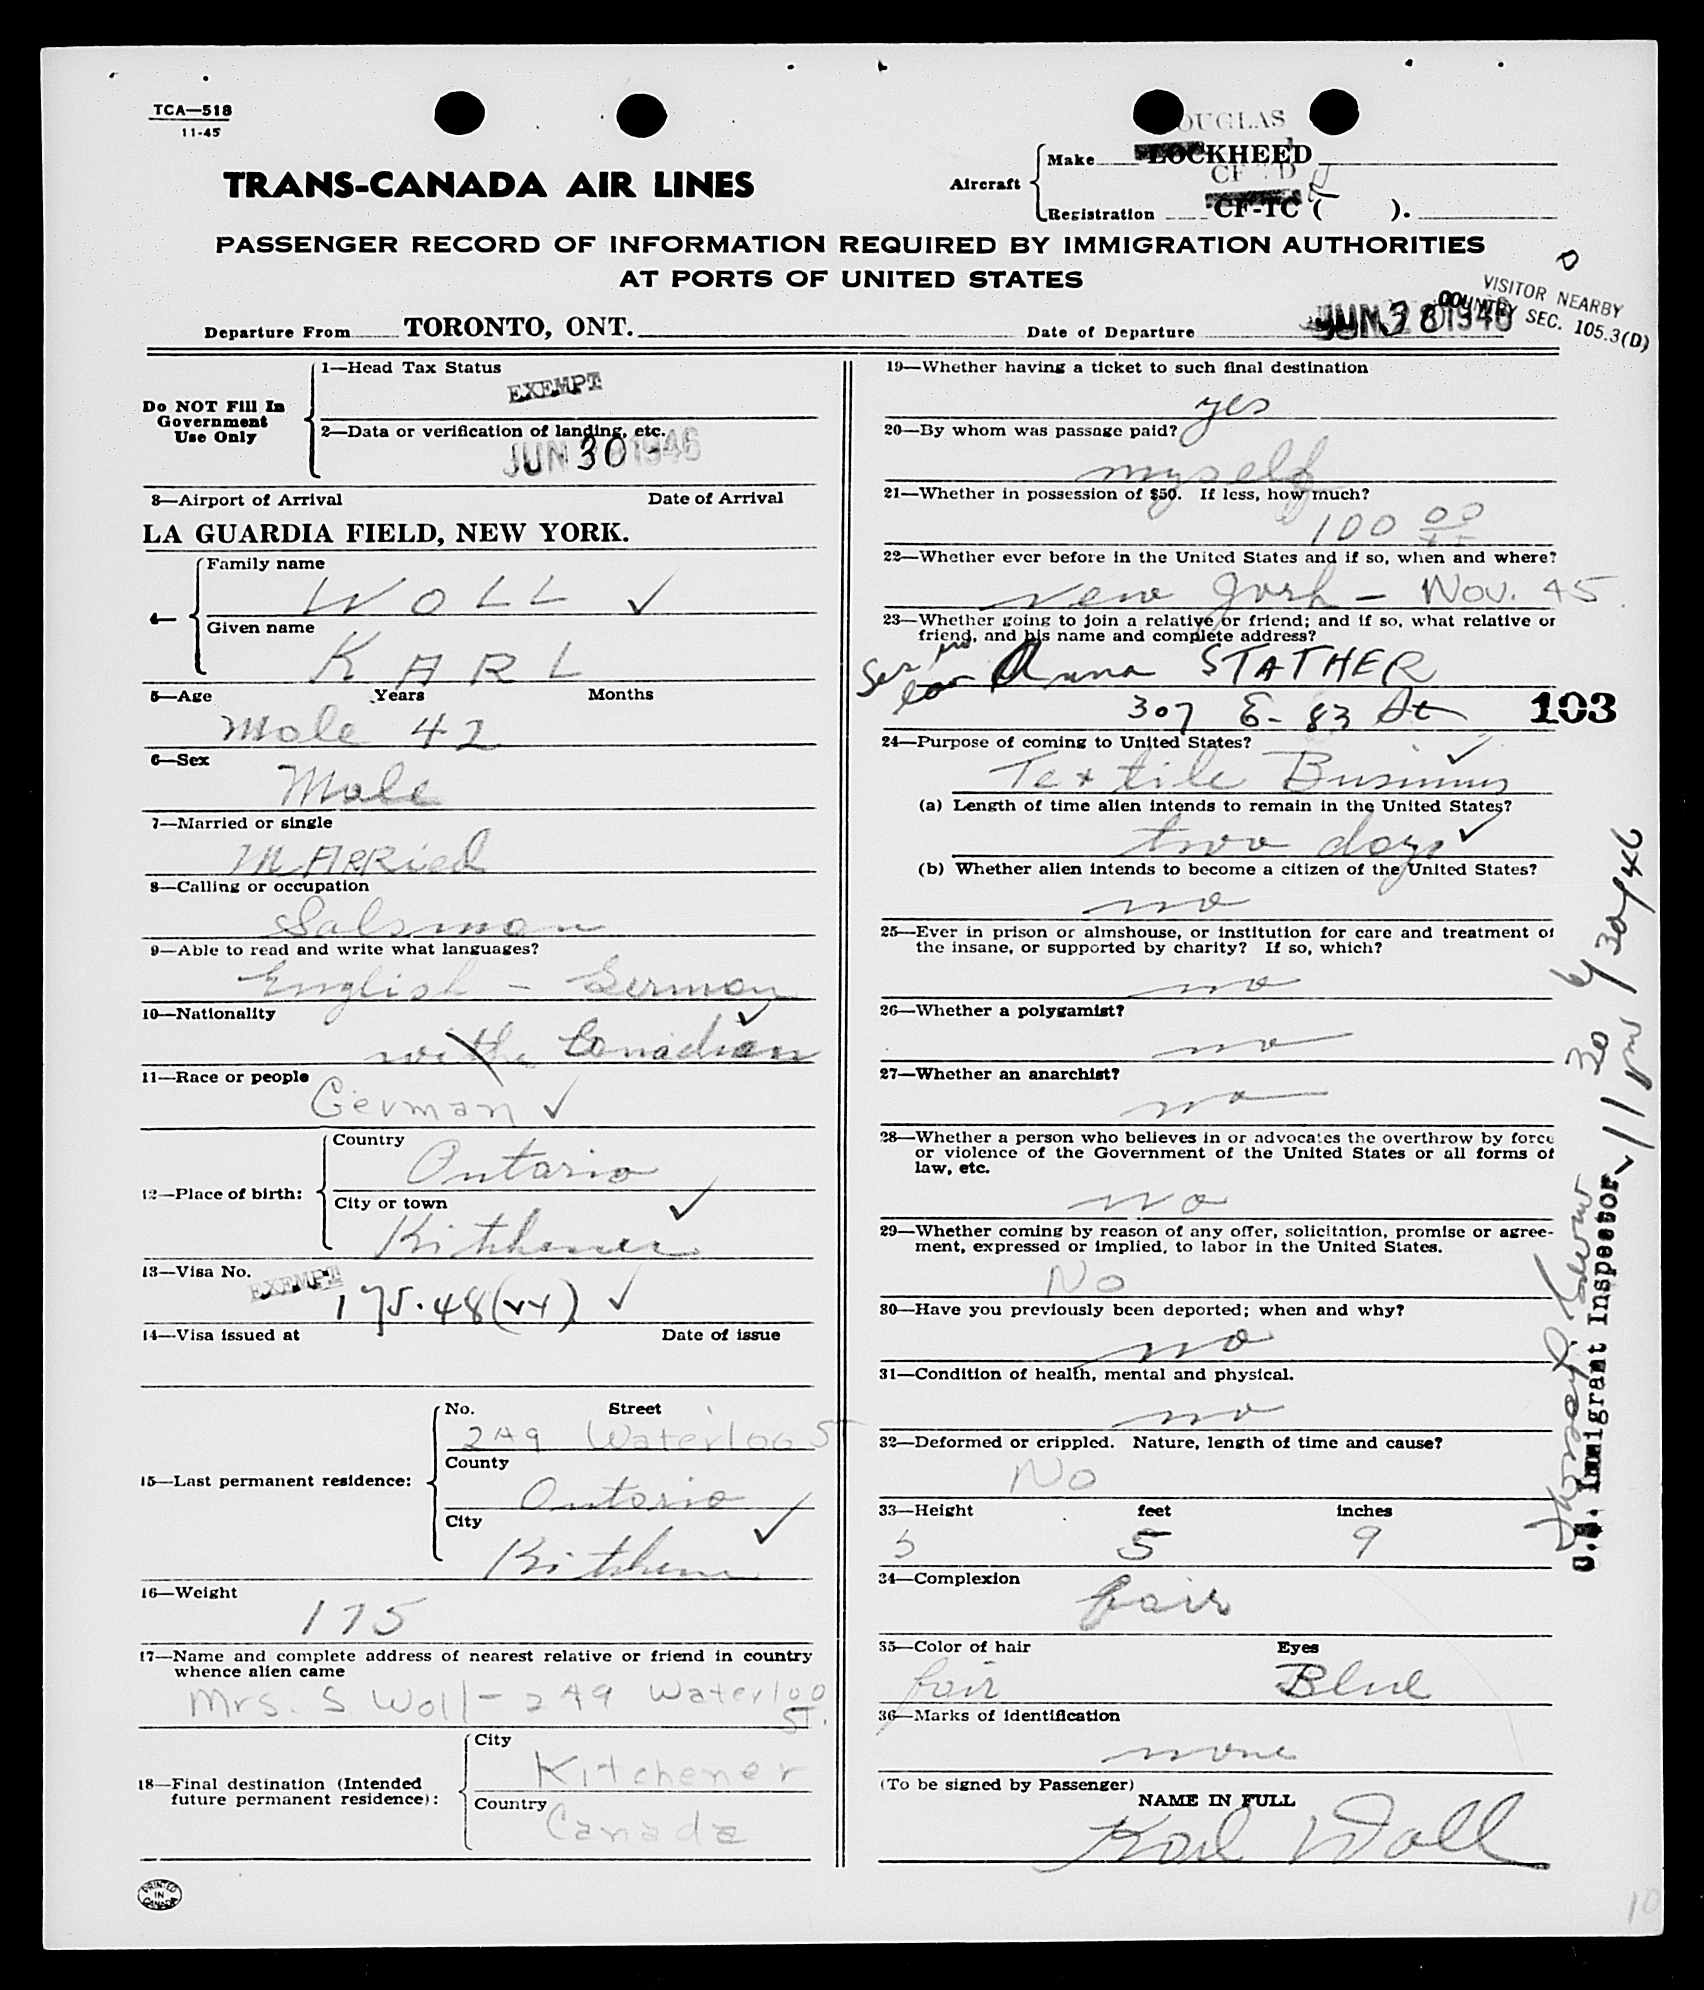 TCA—518
11-45
OUGLAS
Make LOCKHEED
CF D
TRANS-CANADA AIR LINES
Aircraft
Registration CF-TC ( ).
PASSENGER RECORD OF INFORMATION REQUIRED BY IMMIGRATION AUTHORITIES
AT PORTS OF UNITED STATES
VISITOR NEARBY
COUNTRY SEC. 105.3(D)
Departure From TORONTO, ONT.
Date of Departure JUN 30 1946
Do NOT Fill In
Government
Use Only
1—Head Tax Status
EXEMPT
2—Data or verification of landing, etc.
JUN 30 1946
3—Airport of Arrival Date of Arrival
LA GUARDIA FIELD, NEW YORK.
4—
Family name
WOLL ✓
Given name
KARL
5—Age Years Months
Male 42
6—Sex
Male
7—Married or single
MARRied
8—Calling or occupation
Salsman
9—Able to read and write what languages?
English - German
10—Nationality
Canadian ✓
11—Race or people
German ✓
12—Place of birth:
Country
Ontario
City or town
Kitchener ✓
13—Visa No.
EXEMPT
175.48(vv) ✓
14—Visa issued at Date of issue
15—Last permanent residence:
No. Street
249 Waterloo ST
County
Ontario
City
Kitchener ✓
16—Weight
175
17—Name and complete address of nearest relative or friend in country
whence alien came
Mrs. S Woll - 249 Waterloo
ST.
18—Final destination (Intended
future permanent residence):
City
Kitchener
Country
Canada
PRINTED
IN
CANADA
19—Whether having a ticket to such final destination
yes
20—By whom was passage paid?
myself
21—Whether in possession of $50. If less, how much?
100 00
22—Whether ever before in the United States and if so, when and where?
New York - Nov. 45
23—Whether going to join a relative or friend; and if so, what relative or
friend, and his name and complete address?
Anna STATHER
307 E- 83 St
103
24—Purpose of coming to United States?
Textile Business ✓
(a) Length of time alien intends to remain in the United States?
two days ✓
(b) Whether alien intends to become a citizen of the United States?
no
25—Ever in prison or almshouse, or institution for care and treatment of
the insane, or supported by charity? If so, which?
no
26—Whether a polygamist?
no
27—Whether an anarchist?
no
28—Whether a person who believes in or advocates the overthrow by force
or violence of the Government of the United States or all forms of
law, etc.
no
29—Whether coming by reason of any offer, solicitation, promise or agree-
ment, expressed or implied, to labor in the United States.
No
30—Have you previously been deported; when and why?
no
31—Condition of health, mental and physical.
no
32—Deformed or crippled. Nature, length of time and cause?
No
33—Height feet inches
5 5 9
34—Complexion
fair
35—Color of hair Eyes
fair Blue
36—Marks of identification
none
(To be signed by Passenger)
NAME IN FULL
Karl Woll
U.S. Immigrant Inspector